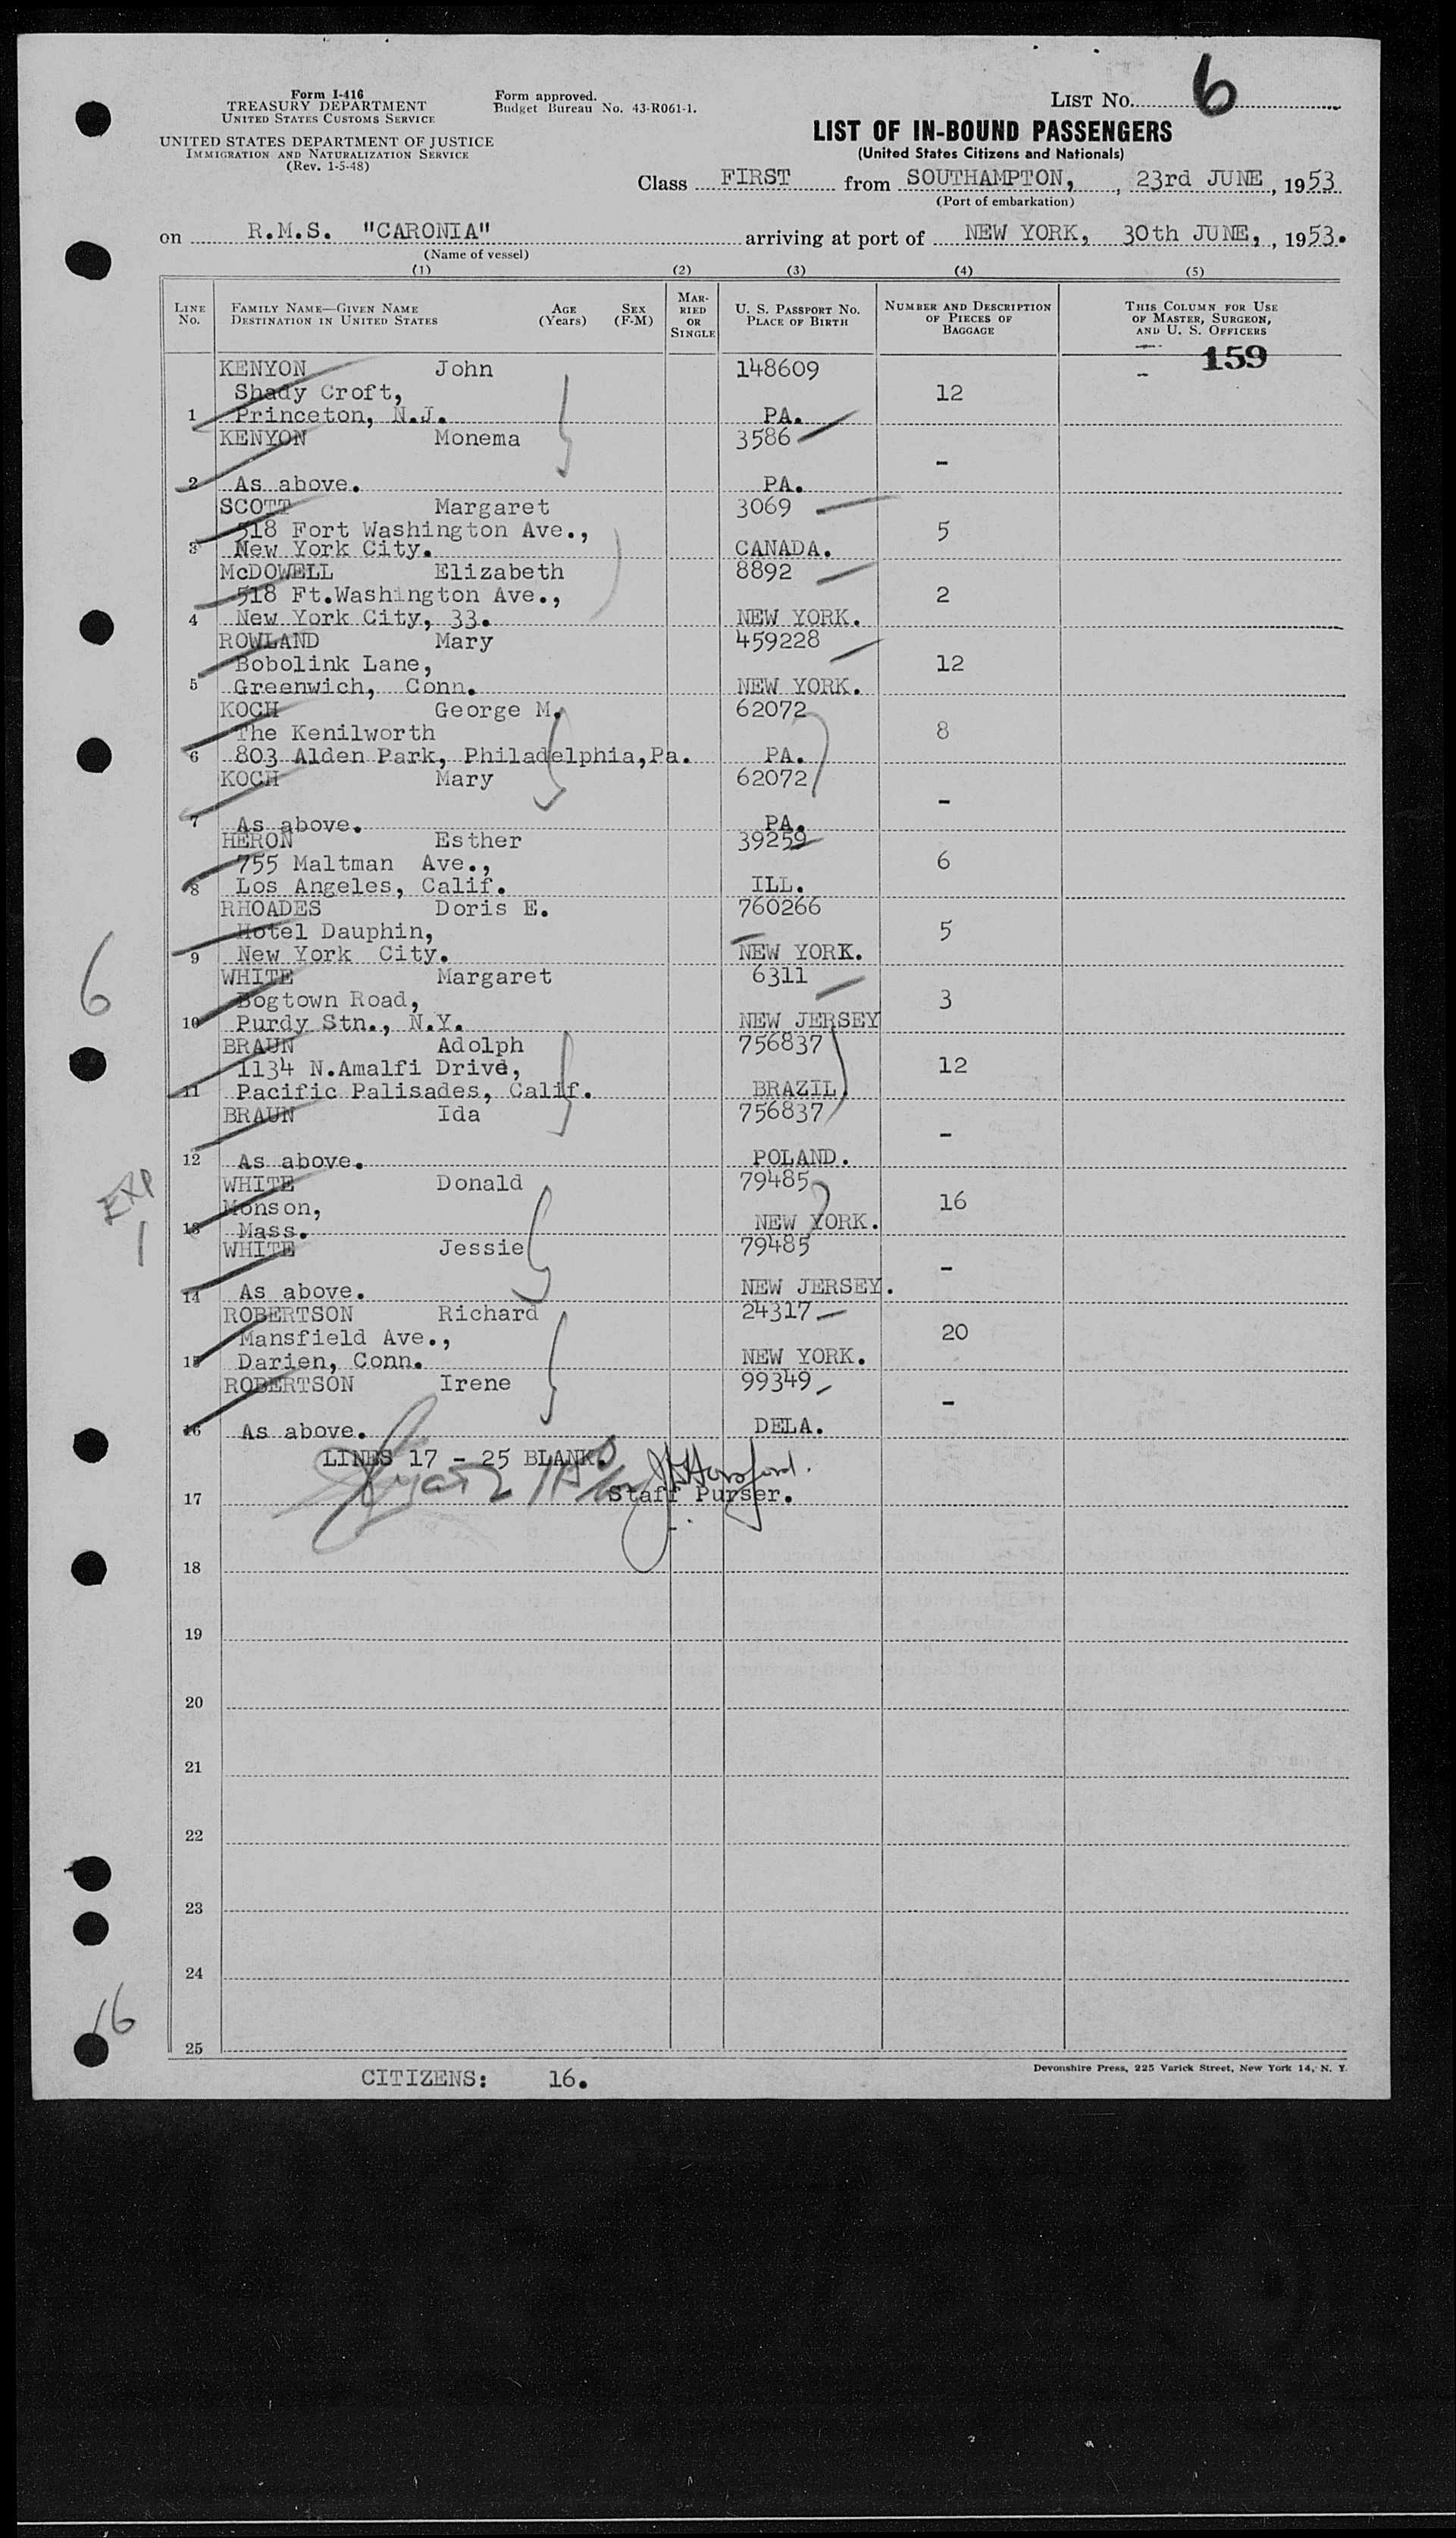 Form I-416
TREASURY DEPARTMENT
UNITED STATES CUSTOMS SERVICE
UNITED STATES DEPARTMENT OF JUSTICE
IMMIGRATION AND NATURALIZATION SERVICE
(Rev. 1-5-48)
Form approved.
Budget Bureau No. 43-R061-1.
LIST No. 6
LIST OF IN-BOUND PASSENGERS
(United States Citizens and Nationals)
Class FIRST from SOUTHAMPTON, , 23rd JUNE , 1953
(Port of embarkation)
on R.M.S. "CARONIA" arriving at port of NEW YORK, 30th JUNE, , 1953.
(Name of vessel)
(1) (2) (3) (4) (5)
LINE No. FAMILY NAME—GIVEN NAME DESTINATION IN UNITED STATES AGE (Years) SEX (F-M) MARRIED OR SINGLE U. S. PASSPORT NO. PLACE OF BIRTH NUMBER AND DESCRIPTION OF PIECES OF BAGGAGE THIS COLUMN FOR USE OF MASTER, SURGEON, AND U. S. OFFICERS
159
KENYON John 148609
Shady Croft, 12
1 Princeton, N.J. PA.
KENYON Monema 3586
-
2 As above. PA.
SCOTT Margaret 3069
518 Fort Washington Ave., 5
3 New York City. CANADA.
McDOWELL Elizabeth 8892
518 Ft.Washington Ave., 2
4 New York City, 33. NEW YORK.
ROWLAND Mary 459228
Bobolink Lane, 12
5 Greenwich, Conn. NEW YORK.
KOCH George M. 62072
The Kenilworth 8
6 803 Alden Park, Philadelphia,Pa. PA.
KOCH Mary 62072
-
7 As above. PA.
HERON Esther 39259
755 Maltman Ave., 6
8 Los Angeles, Calif. ILL.
RHOADES Doris E. 760266
Hotel Dauphin, 5
9 New York City. NEW YORK.
WHITE Margaret 6311
6
Bogtown Road, 3
10 Purdy Stn., N.Y. NEW JERSEY
BRAUN Adolph 756837
1134 N.Amalfi Drive, 12
11 Pacific Palisades, Calif. BRAZIL.
BRAUN Ida 756837
-
12 As above. POLAND.
WHITE Donald 79485
EXP
1
Monson, 16
13 Mass. NEW YORK.
WHITE Jessie 79485
-
14 As above. NEW JERSEY.
ROBERTSON Richard 24317
Mansfield Ave., 20
15 Darien, Conn. NEW YORK.
ROBERTSON Irene 99349
-
16 As above. DELA.
LINES 17 - 25 BLANK.
17 Staff Purser.
18
19
20
21
22
23
24
16
25
CITIZENS: 16.
Devonshire Press, 225 Varick Street, New York 14, N. Y.